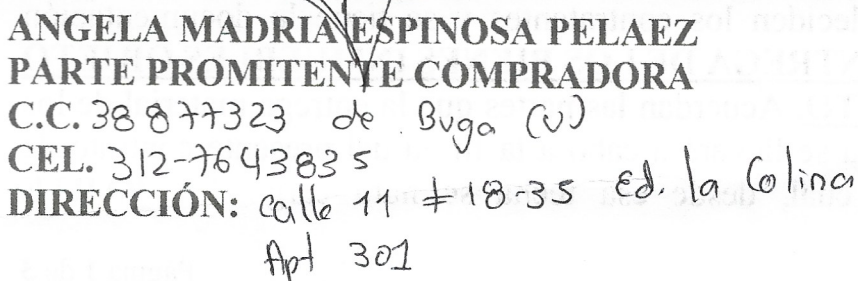 ANGELA MADRIA ESPINOSA PELAEZ
PARTE PROMITENTE COMPRADORA
C.C. 38 877323 de Buga (V)
CEL. 312-7643835
DIRECCIÓN: calle 11 # 8-35 Ed. la Colina
Apt 301